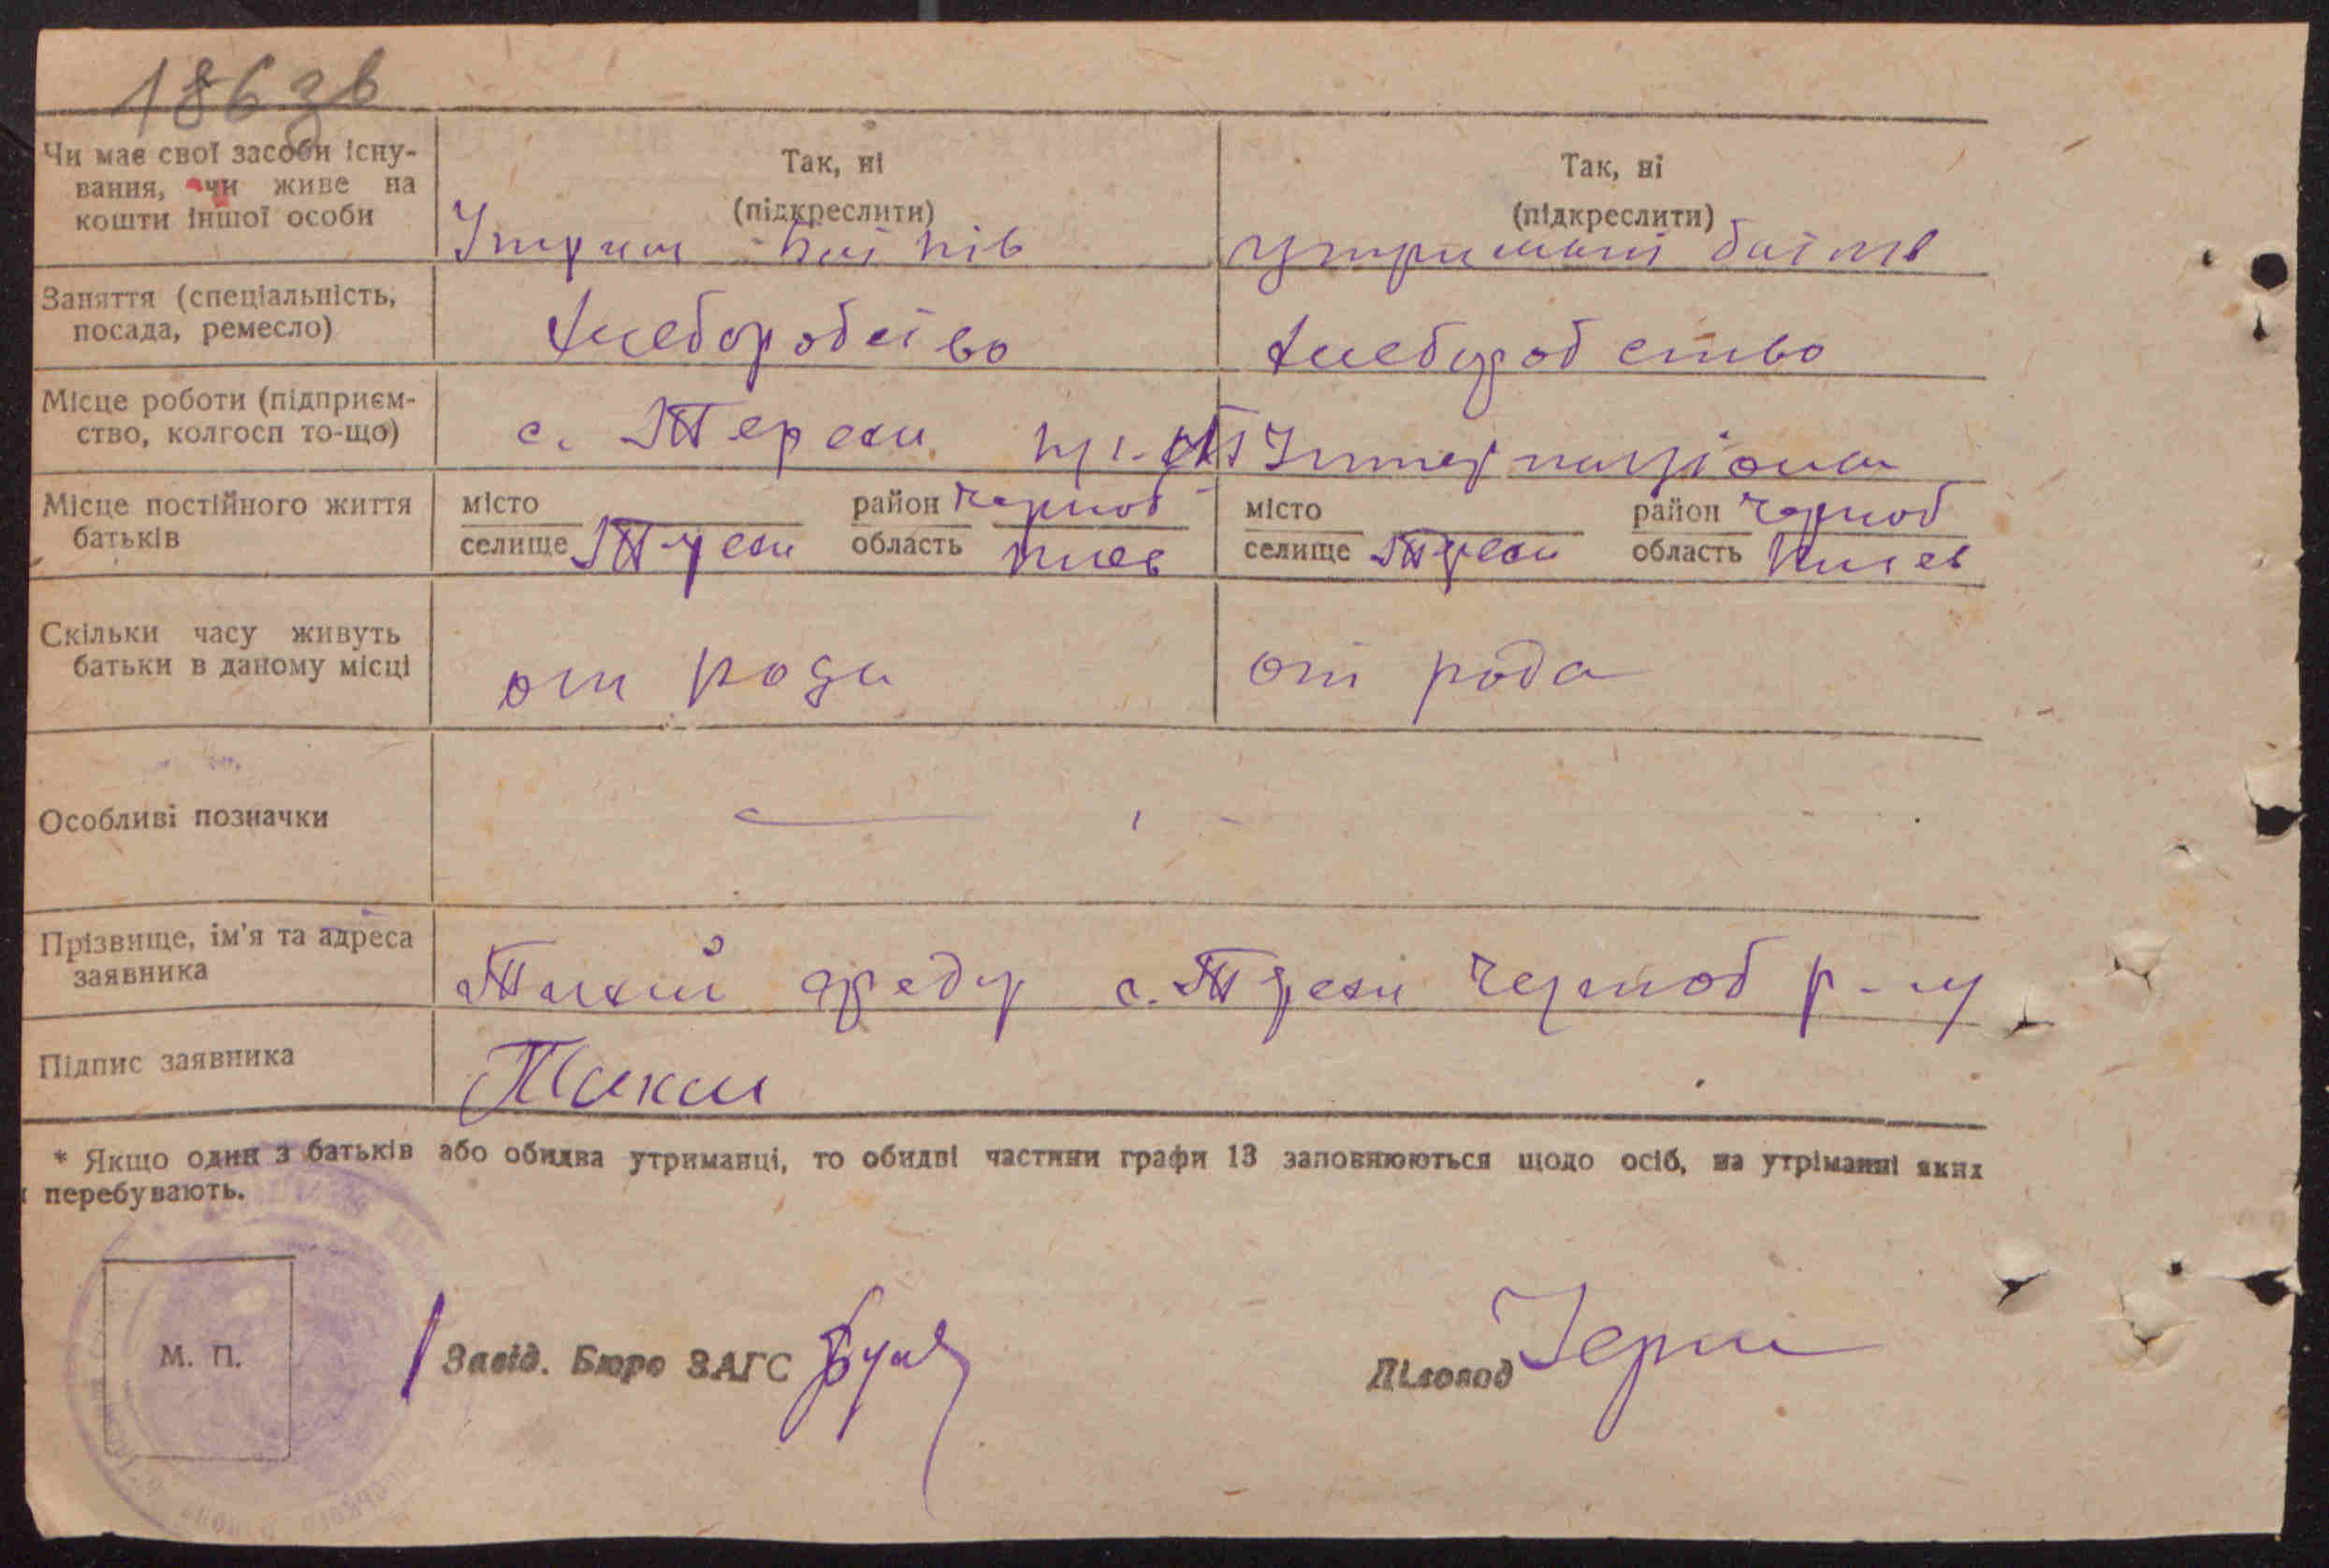 186 зв
Чи має свої засоби існу-
вання, чи живе на
кошти іншої особи
Так, ні
(підкреслити)
Так, ні
(підкреслити)
утримані батків
Заняття (спеціальність,
посада, ремесло)
хлеборобство
хлеборобство
Місце роботи (підприєм-
ство, колгосп то-що)
с. Терехи
Інтернаціонал
Місце постійного життя
батьків
місто
селище Терехи
район Чорноб
область Киев
місто
селище Терехи
район Чорноб
область Киев
Скільки часу живуть
батьки в даному місці
от рода
от рода
Особливі позначки
Прізвище, ім'я та адреса
заявника
Тихий Федір с. Терехи Чорноб р-ну
Підпис заявника
* Якщо один з батьків або обидва утриманці, то обидві частини графи 13 заповнюються щодо осіб, на утріманні яких
перебувають.
М. П.
Завід. Бюро ЗАГС
Діловод